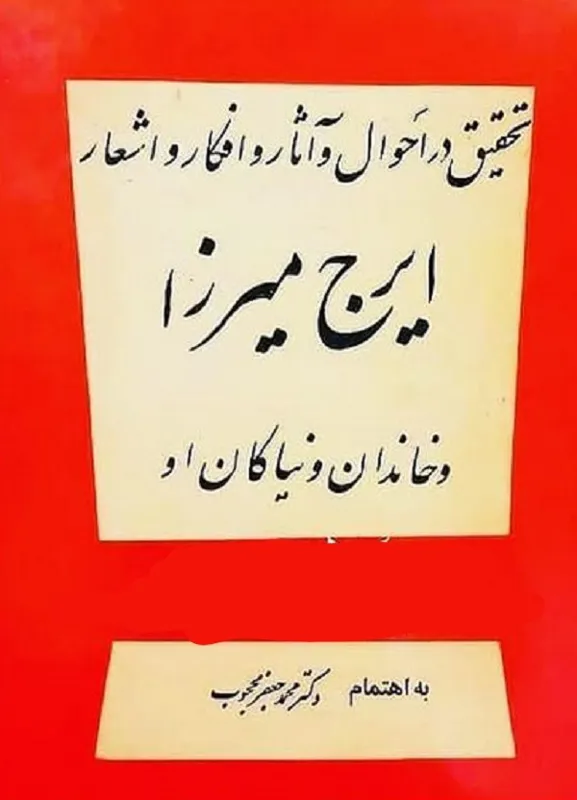 تحقیق در احوال و آثار و افکار و اشعار
ایرج میرزا
و خاندان و نیاکان او
به اهتمام دکتر محمد جعفر محجوب